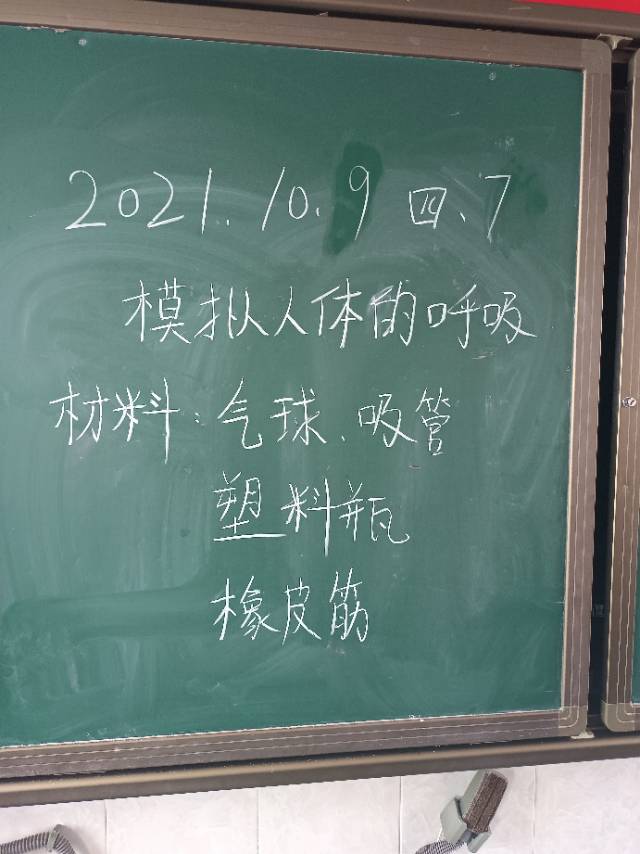 2021.10.9 四、7
模拟人体的呼吸
材料：气球、吸管
塑料瓶
橡皮筋